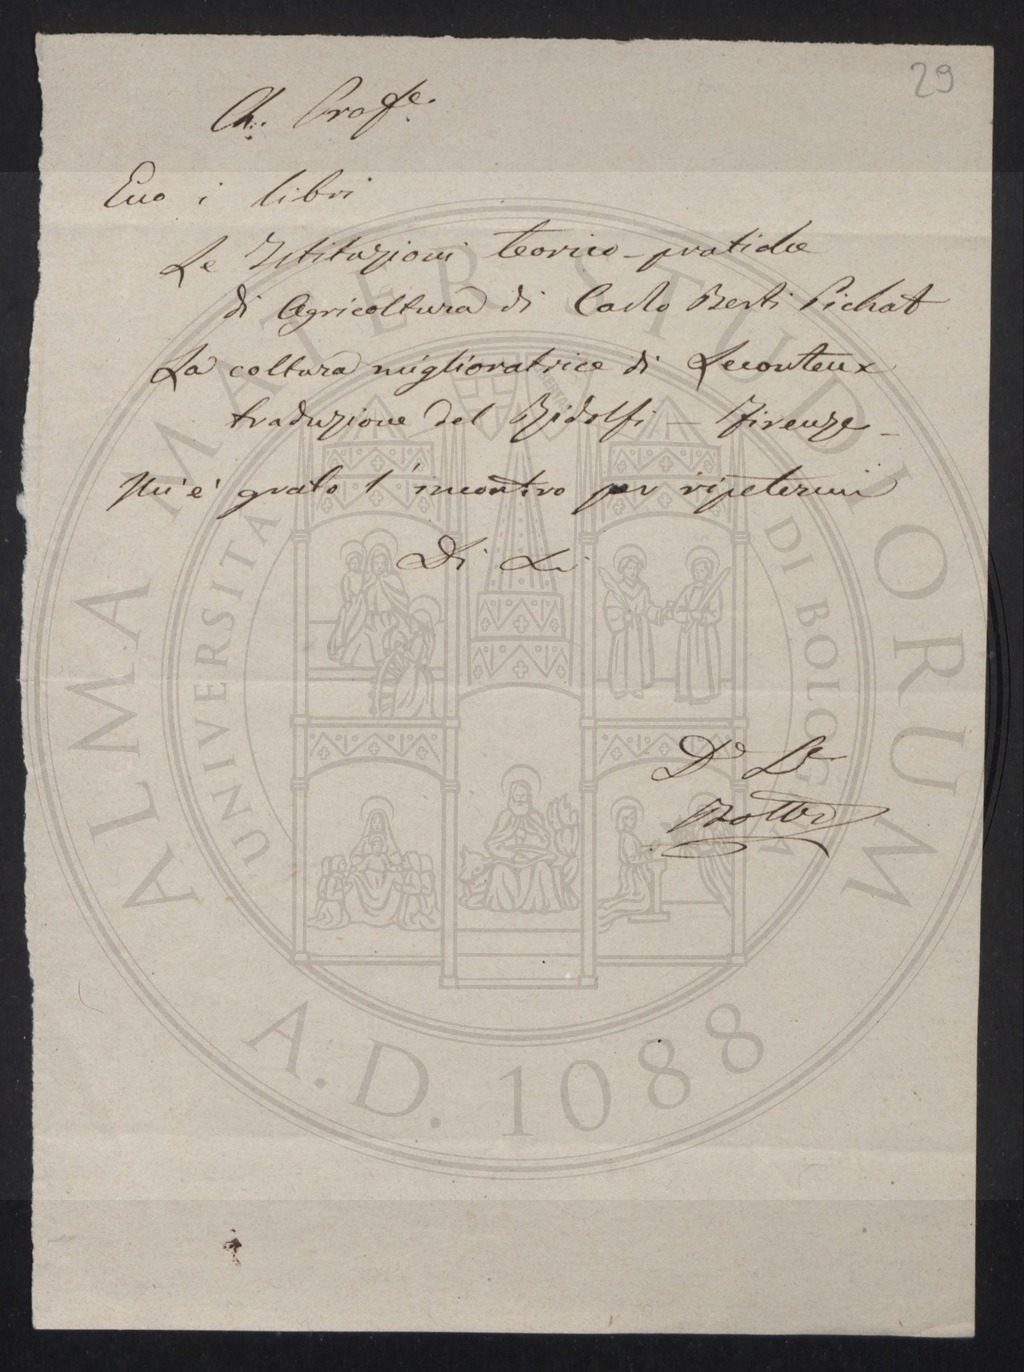 29
Ch. Profe.
Ecco i libri
Le Istituzioni teorico-pratiche
di Agricoltura di Carlo Berti Pichat
La coltura miglioratrice di Lecouteux
traduzione del Ridolfi – Firenze –
Mi è grato l'incontro per ripetermi
Di Lei
Dr L
Botter
ALMA MATER STUDIORUM
UNIVERSITA DI BOLOGNA
A.D. 1088